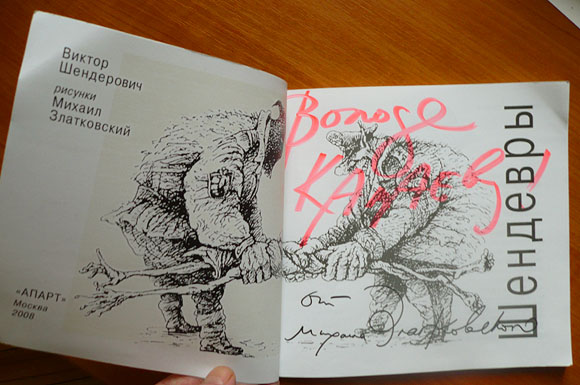 Виктор
Шендерович
рисунки
Михаил
Златковский
«АПАРТ»
Москва
2008
Володе
Шендевры
от
Михаила Златковского